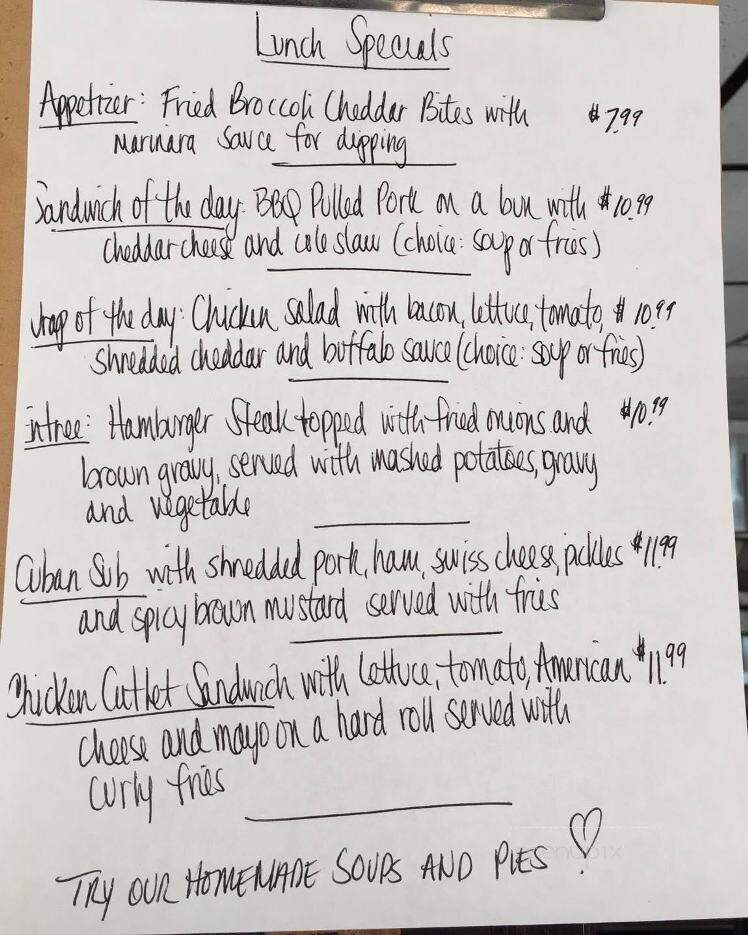 Lunch Specials
Appetizer: Fried Broccoli Cheddar Bites with $7.99
Marinara Sauce for dipping
Sandwich of the day: BBQ Pulled Pork on a bun with $10.99
cheddar cheese and cole slaw (choice: soup or fries)
Wrap of the day: Chicken salad with bacon, lettuce, tomato, $10.99
shredded cheddar and buffalo sauce (choice: soup or fries)
Entree: Hamburger Steak topped with fried onions and $10.99
brown gravy, served with mashed potatoes, gravy
and vegetable
Cuban Sub with shredded pork, ham, swiss cheese, pickles $11.99
and spicy brown mustard served with fries
Chicken Cutlet Sandwich with lettuce, tomato, American $11.99
cheese and mayo on a hard roll served with
curly fries
TRY OUR HOMEMADE SOUPS AND PIES !